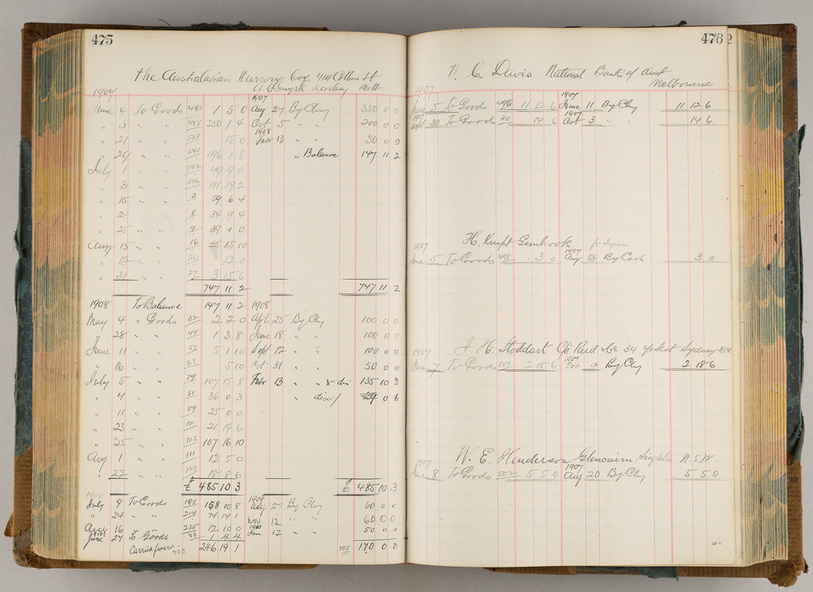 475
The Australasian Nursery Coy 414 Collins St
1907 Melb.
June 4 To Goods 1 5 0 Aug 27 By Chq 350 0 0
" 5 " " 250 1 4 Oct 5 " " 200 0 0
" 21 " " 15 0 1908 Febr 13 " " 50 0 0
" 29 " " 196 1 8 " Balance 147 11 2
July 1 " " 49 9 0
" 3 " " 111 19 2
" 15 " " 3 59 6 4
" 2 " " 8 39 9 4
" 25 " " 9 39 9 0
Aug 15 " " 16 5 15 10
" 19 " " 12 0
" 31 " " 27 3 15 6
747 11 2 747 11 2
1908 To Balance 147 11 2 1908
May 4 " Goods 2 2 0 Apl 25 By Chq 100 0 0
" 28 " " 44 1 3 8 June 18 " " 100 0 0
June 11 " " 5 1 10 Sept 12 " " 100 0 0
" 16 " " 63 5 10 Oct 31 " " 50 0 0
July 5 " " 107 15 8 Febr 13 " " 135 10 3
" 4 " " 36 0 3 " disct
" 11 " " 89 25 0 0
" 23 " " 21 19 6
" 25 " " 103 107 16 10
Aug 1 " " 111 12 5 0
" 22 " " 18 8 6
£ 485 10 3 £ 485 10 3
July 9 To Goods 158 10 8 1909 Aug 27 By Chq 60 0 0
" 24 " " 214 74 14 1 Nov 12 " " 60 0 0
16 " " 235 12 10 0 1910 Jan 12 " " 50 0 0
June 27 To Goods 1 4 4
Carried forwt 785 246 19 1 785 170 0 0
476
N. C. Davis National Bank of Aust
Melbourne
1907
5 To Goods 11 12 6 1907 June 11 By Chq 11 12 6
1907 Sept 30 To Goods 14 6 1907 Oct 3 " " 14 6
H. Knipt Gembrook
1907
June 5 To Goods 498 3 0 1907 Aug 13 By Cash 3 0
A. H. Stoddart C/o Reid & Co 34 York St Sydney NSW
1907
June 7 To Goods 501 2 18 6 1907 By Chq 2 18 6
W. E. Henderson Glencairn Singleton N.S.W
1907
June 8 To Goods 502 5 5 0 1907 Aug 20 By Chq 5 5 0